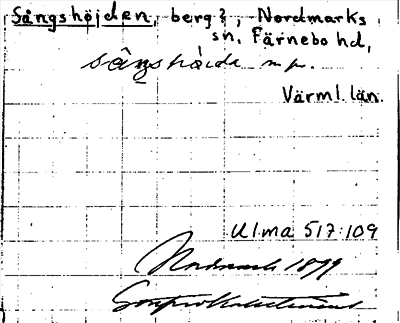 Sångshöjden, berg?, Nordmarks
sn, Färnebo hd,
sångshöjda m.fl.
Värml. län.
Ulma 517:109
Nordmark 1899